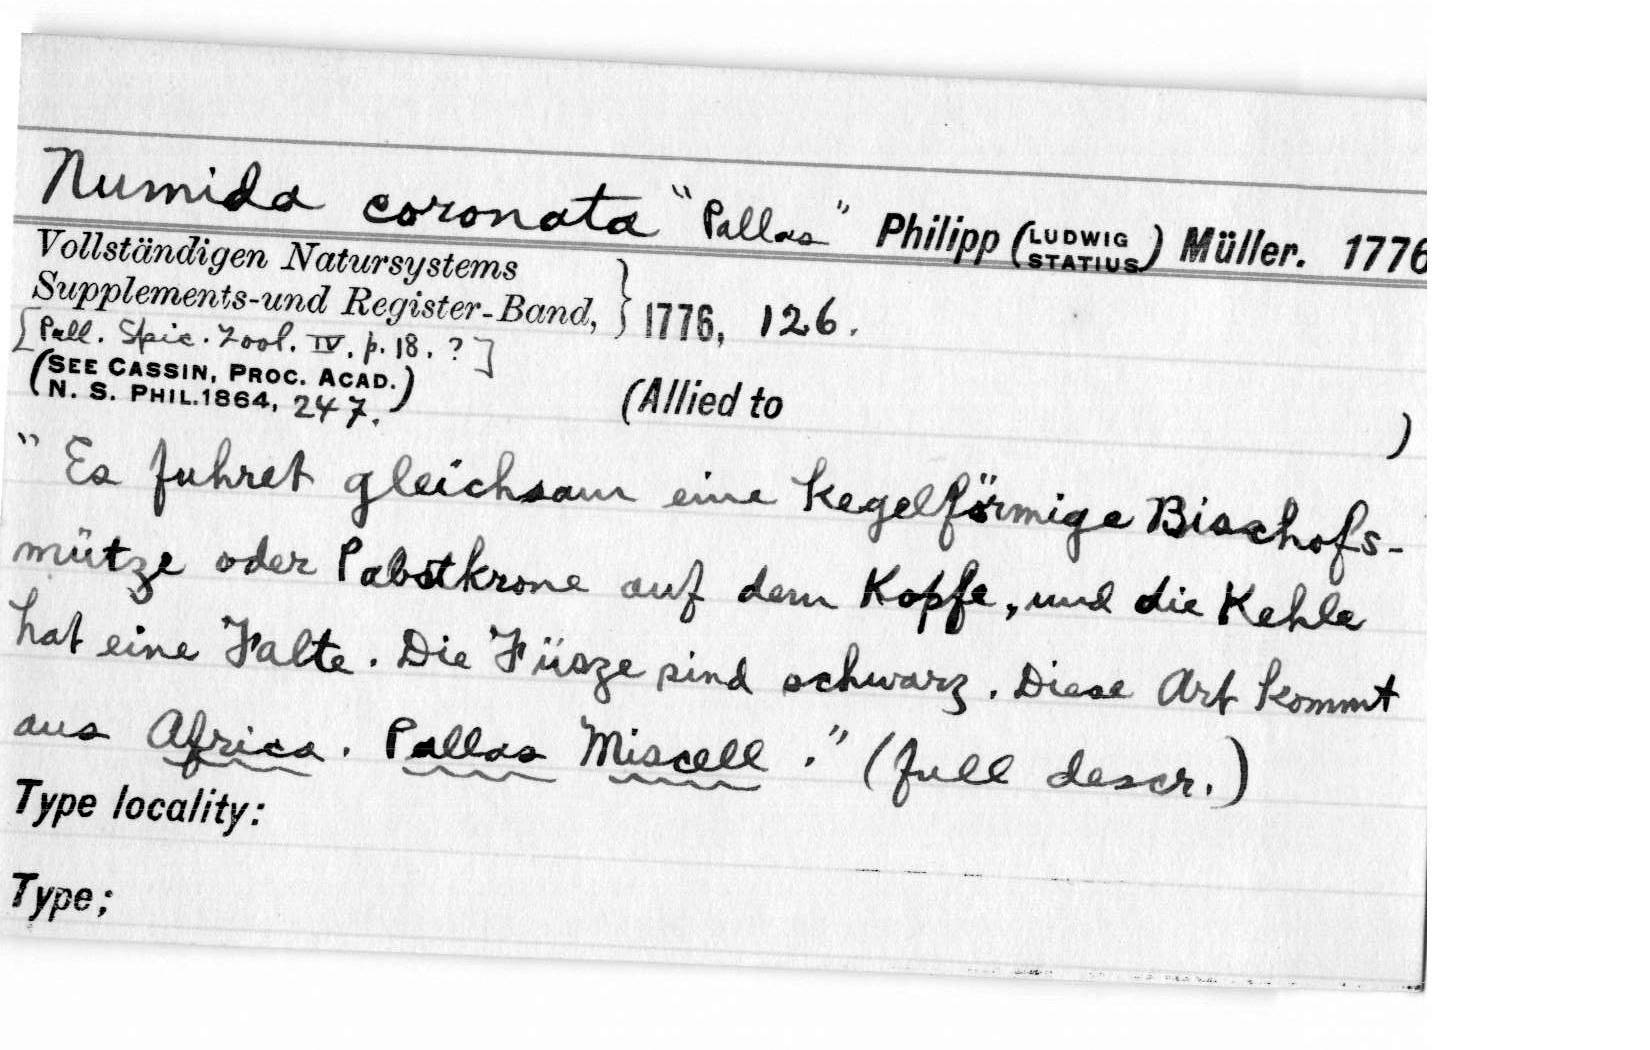 Numida coronata "Pallas" Philipp (LUDWIG STATIUS) Müller. 1776
Vollständigen Natursystems
Supplements-und Register-Band, } 1776, 126.
[Pall. Spic. Zool. IV. p. 18. ?]
(SEE CASSIN, PROC. ACAD.
N. S. PHIL. 1864, 247.)
(Allied to )
"Es fuhret gleichsam eine kegelförmige Bischofs-
mütze oder Pabstkrone auf dem Kopfe, und die Kehle
hat eine Falte. Die Füsze sind schwarz. Diese Art kommt
aus Africa. Pallas Miscell." (full descr.)
Type locality:
Type;